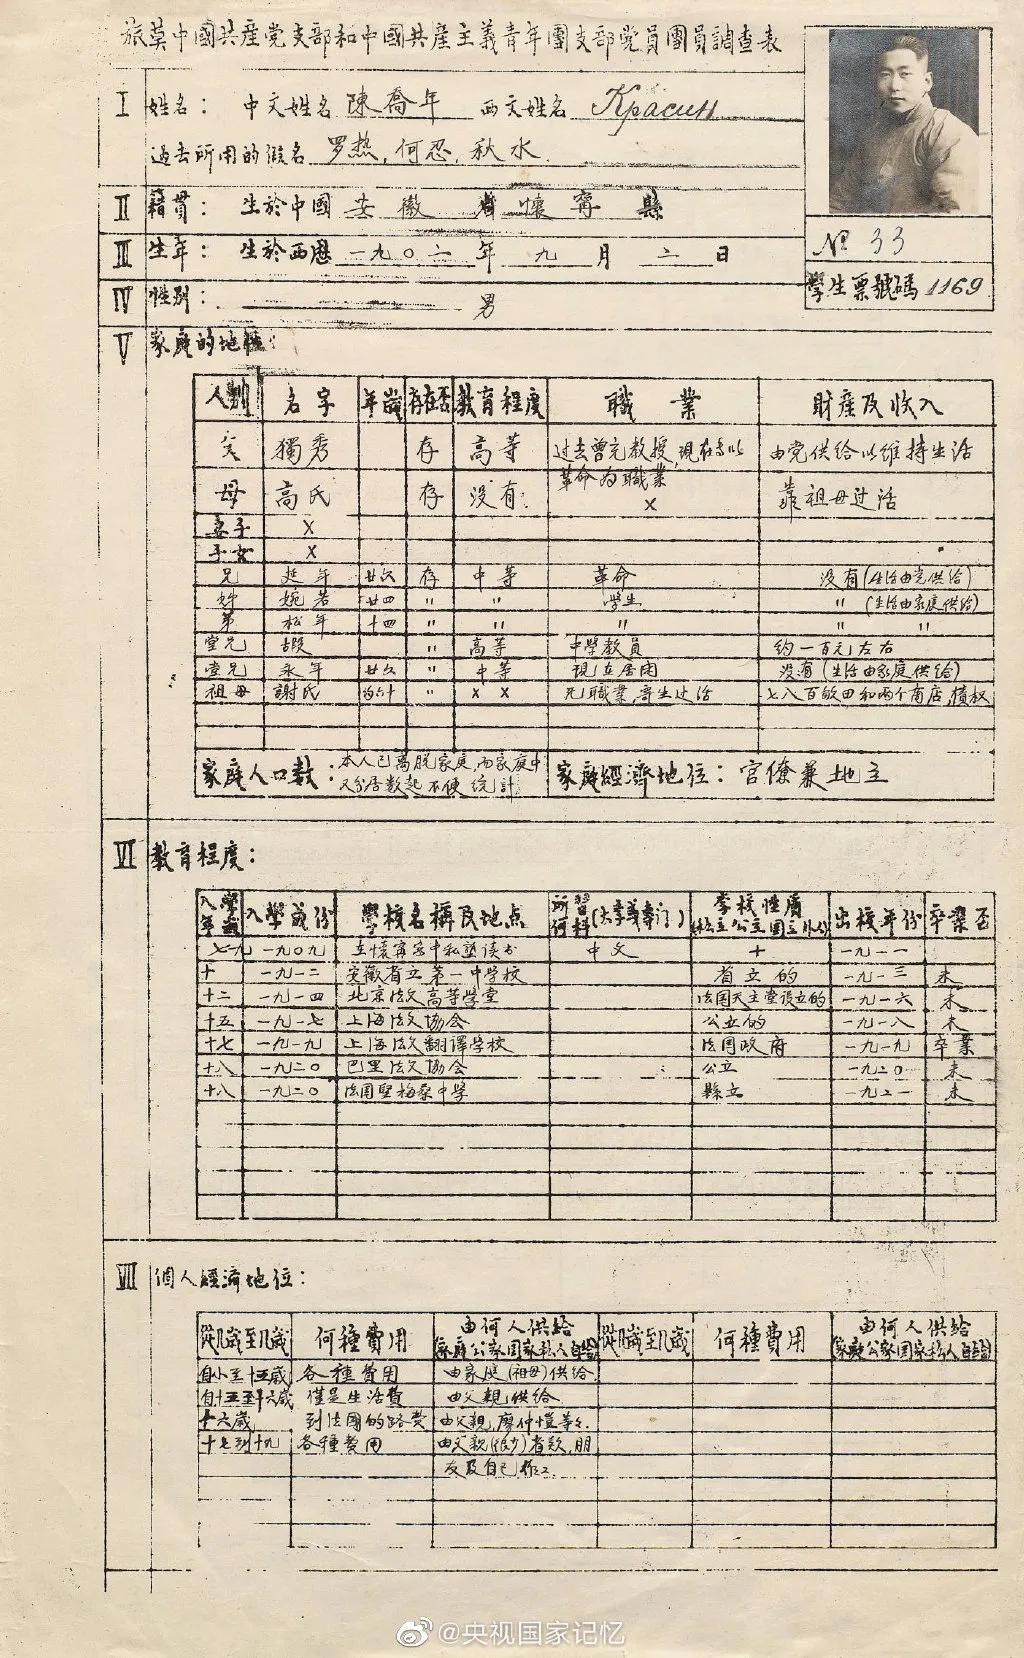 旅莫中國共產党支部和中國共產主義青年團支部党員團員調查表
I 姓名： 中文姓名 陳喬年 西文姓名 Красин
过去所用的假名 罗热，何忍，秋水．
II 籍貫： 生於中國 安徽 省 懷寧 縣
III 生年： 生於西歷 一九〇二 年 九 月 二 日
IV 性別： 男
№ 33
學生票號碼 1169
V 家庭的地位：
人別 名字 年歲 存在否 教育程度 職業 財產及收入
父 獨秀 存 高等 过去曾充教授，現在以革命為職業 由党供给以維持生活
母 高氏 存 没有． × 靠祖母过活
妻子 ×
子女 ×
兄 延年 廿六 存 中等 革命 没有（生活由党供给）
姊 婉若 廿四 〃 〃 学生 〃（生活由家庭供给）
弟 松年 十四 〃 〃 〃 〃 〃
堂兄 嘏 〃 高等 中學教員 约一百元左右
堂兄 永年 廿六 〃 中等 現在居闲 没有（生活由家庭供给）
祖母 謝氏 约六十 〃 × × 无職業，寄生过活 七八百畝田和两个商店，債权
家庭人口数：本人已离脱家庭，而家庭中又分居数起不便统計 家庭經濟地位：官僚兼地主
VI 教育程度：
入學年歲 入學年份 學校名稱及地点 所習何科（大學或專门） 学校性質（私立公立国立外人） 出校年份 卒業否
七九 一九〇九 在懷寧家中私塾读书 中文 十 一九一一
十 一九一二 安徽省立第一中学校 省立的 一九一三 未
十二 一九一四 北京法文高等學堂 法国天主堂设立的 一九一六 未
十五 一九一七 上海法文協会 公立的 一九一八 未
十七 一九一九 上海法文翻譯学校 法国政府 一九一九 卒業
十八 一九二〇 巴里法文協会 公立 一九二〇 未
十八 一九二〇 法国聖梅桑中学 縣立 一九二一 未
VII 個人經濟地位：
從几歲至几歲 何種費用 由何人供给（家庭公家国家私人自给） 從几歲至几歲 何種費用 由何人供给（家庭公家国家私人自给）
自小至十五歲 各種費用 由家庭（祖母）供给
自十五至十六歲 僅是生活費 由父親供给
十六歲 到法國的路費 由父親，廖仲愷等々．
十七到十九 各種費用 由父親（很少）者欵，朋友及自己作工．
@央视国家记忆